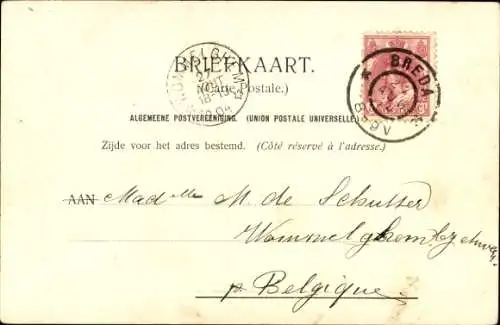 BRIEFKAART.
(Carte Postale.)
ALGEMEENE POSTVEREENIGING. (UNION POSTALE UNIVERSELLE.)
Zijde voor het adres bestemd. (Côté réservé à l'adresse.)
BREDA
27 AOUT
18-19
04
AAN Madelle M. de Schutter
Wommelghem
p Belgique